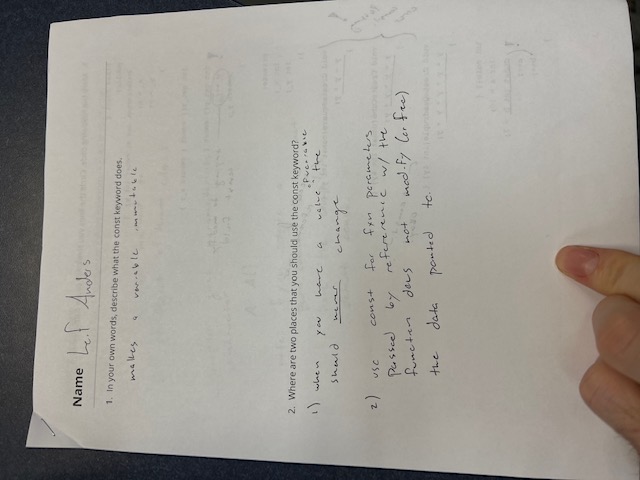 Name Leif Anders
1. In your own words, describe what the const keyword does.
makes a variable immutable
2. Where are two places that you should use the const keyword?
1) when you have a value the
should never change
2) use const for fxn parameters
passed by reference w/ the
function does not modify (or free)
the data pointed to.